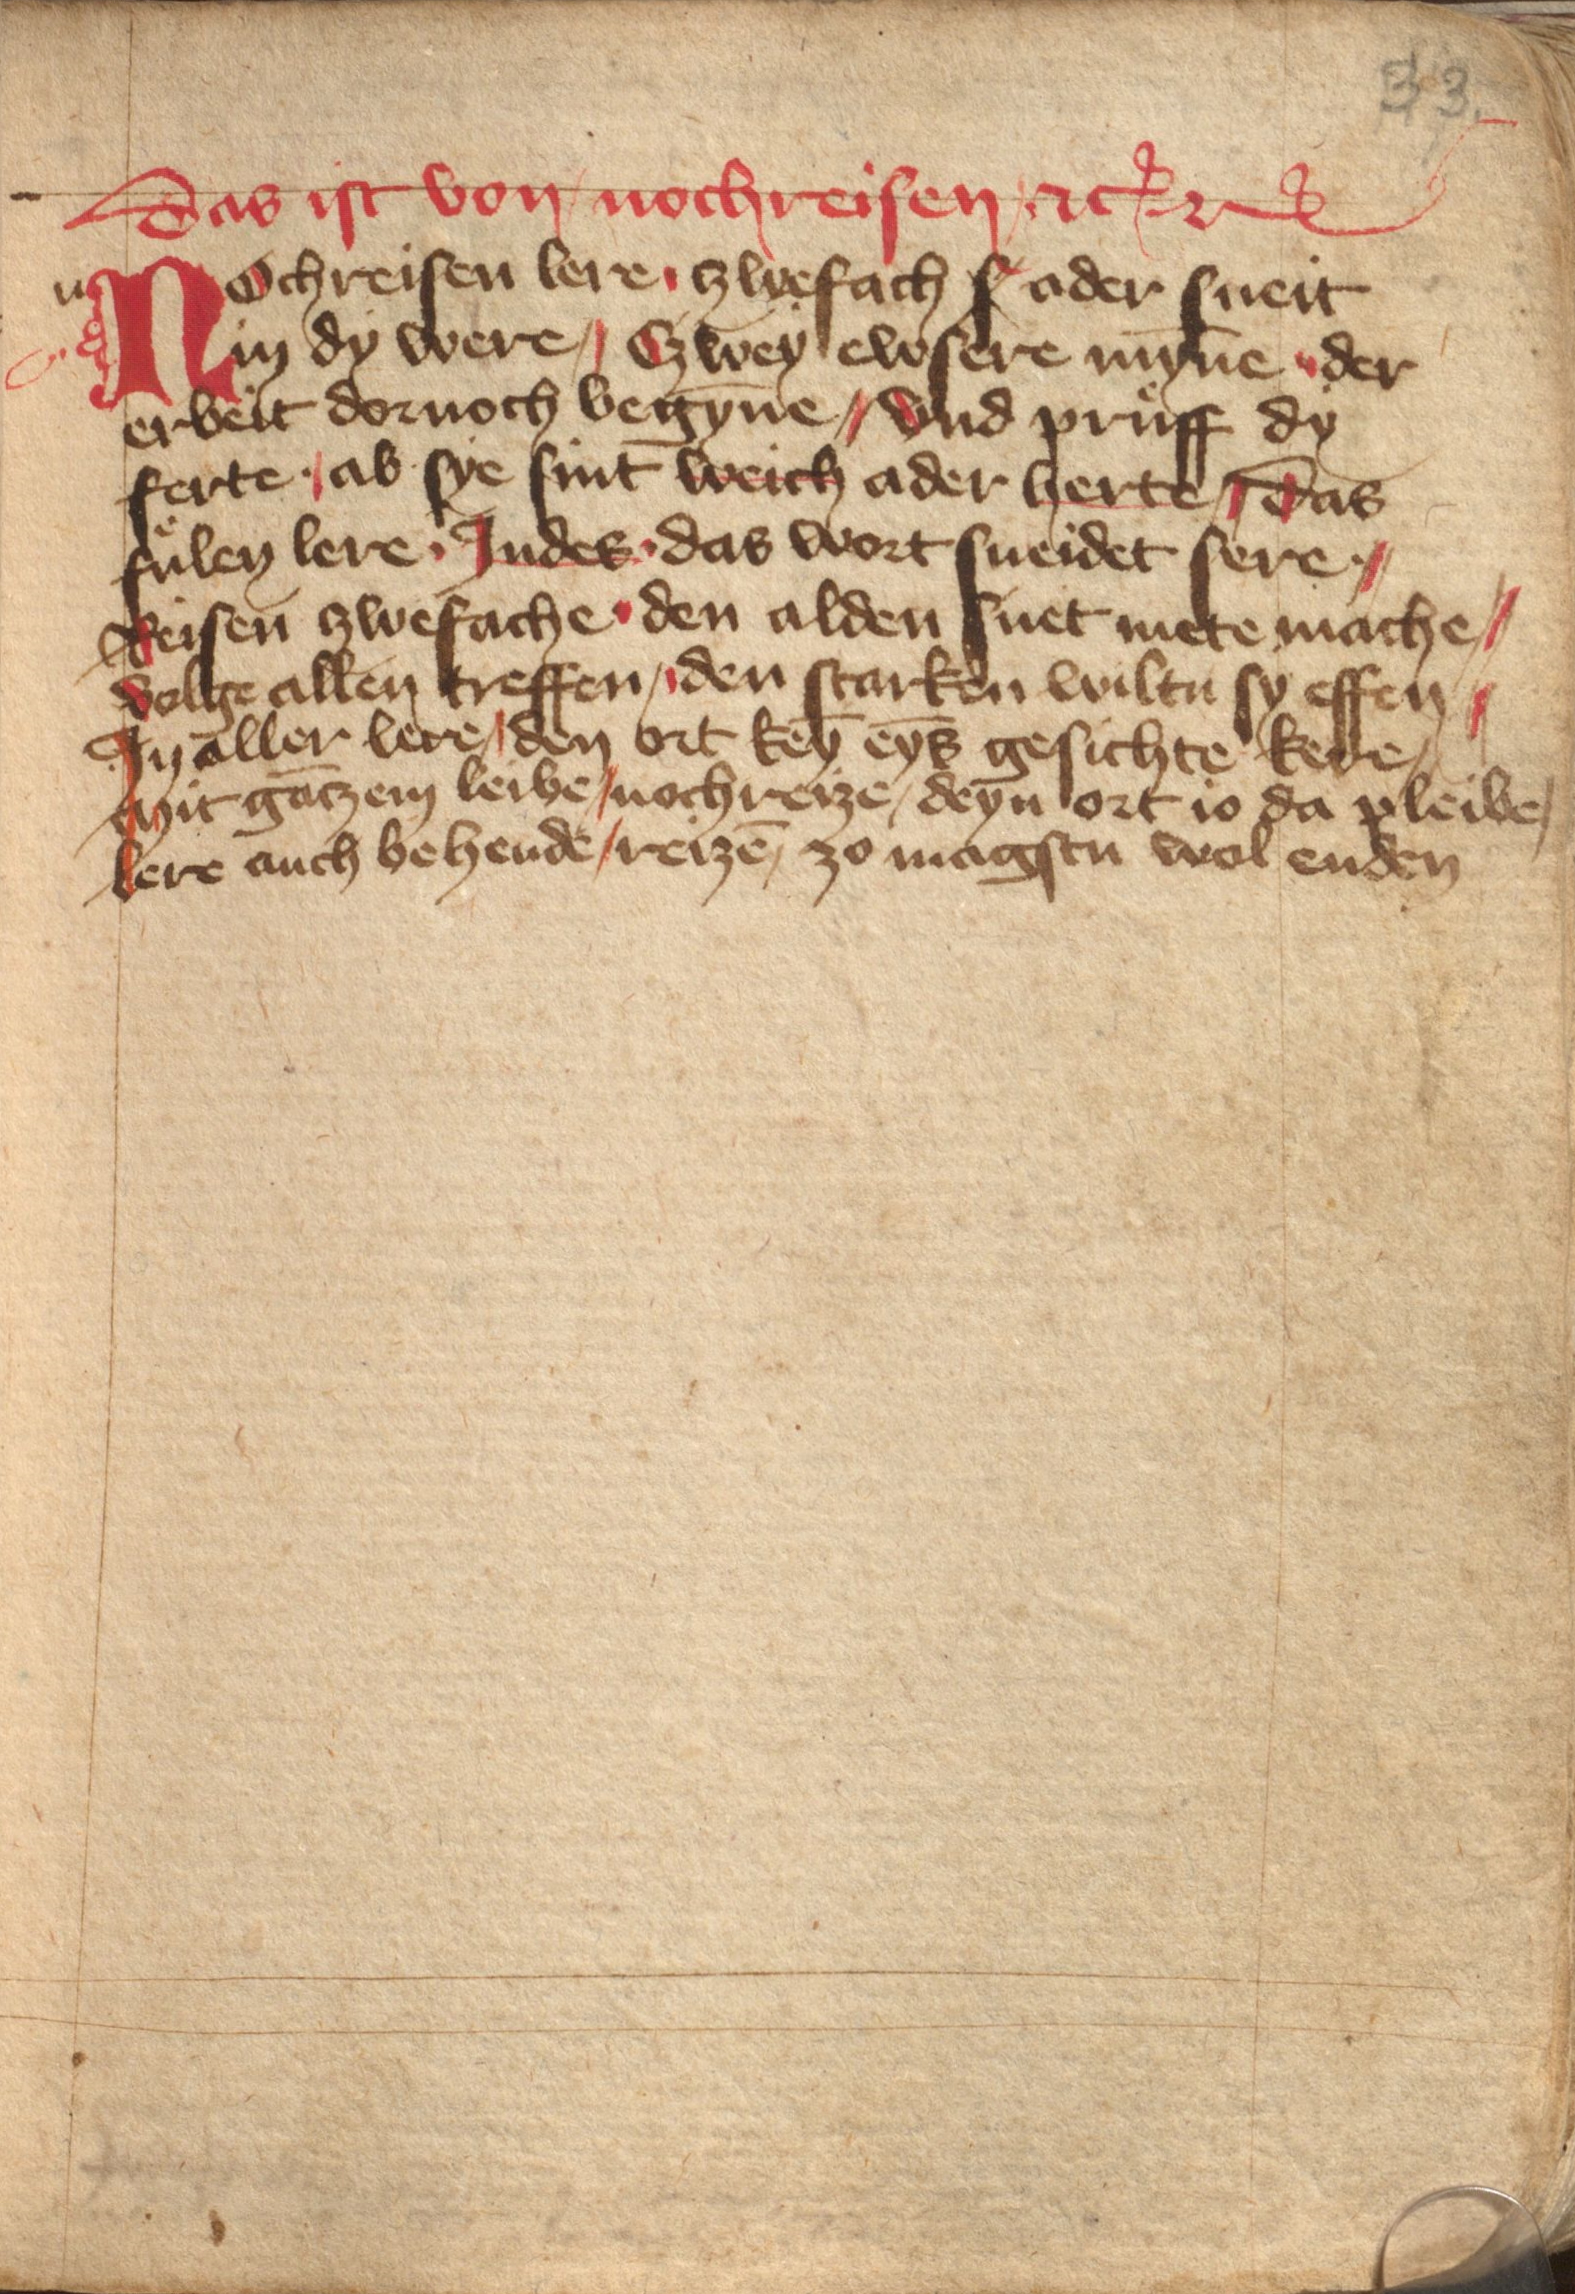 33.
Das ist von nochreisen ꝛc
n NOchreisen lere · czwefach ader sneit
in dy were / Czwey ewsere mȳne · der
erbeit dornoch begȳne / Vnd pruͤff dy
ferte · ab sye sint weich ader herte / Das
fuͤlen lere · Indes · das wort sneidet sere · /
Reisen czwefache · den alden snet mete mache /
volge allen treffen / den starken wiltu sy effen /
In aller lere / den ort kēy eȳs gesichte kere /
Mit gāczem leibe / nochreize / deyn ort io da pleibe /
lere auch behende / reizē / zo magstu wol enden